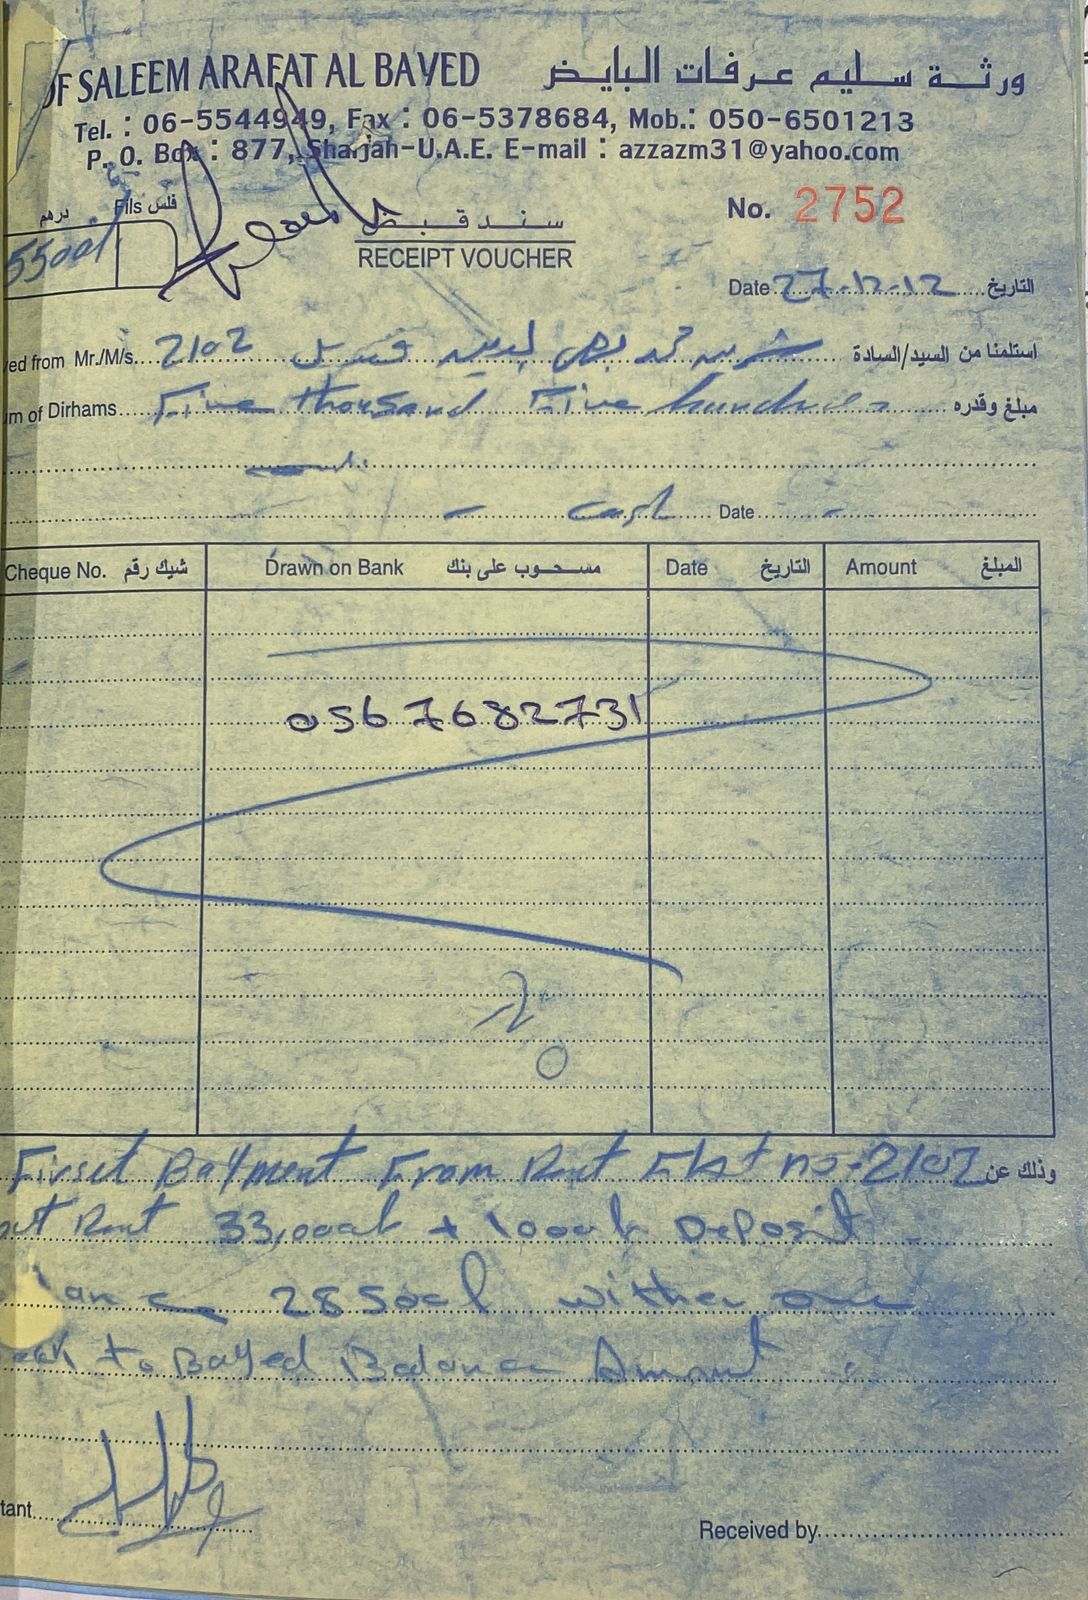 OF SALEEM ARAFAT AL BAYED ورثة سليم عرفات البايض
Tel. : 06-5544949, Fax : 06-5378684, Mob.: 050-6501213
P. O. Box : 877, Sharjah-U.A.E. E-mail : azzazm31@yahoo.com
درهم Fils فلس
5500/
سند قبض
RECEIPT VOUCHER
No. 2752
Date 27-12-12 التاريخ
ved from Mr./M/s. 2102 استلمنا من السيد/السادة
um of Dirhams Five thousand Five hundred مبلغ وقدره
cash Date
Cheque No. شيك رقم Drawn on Bank مسحوب على بنك Date التاريخ Amount المبلغ
056 7682731
Firset Bayment From Rent Flat no-2102 وذلك عن
Rent 33,000/ + 1000/ Deposit
28500/ within one
to Bayed Balance Amount
tant
Received by